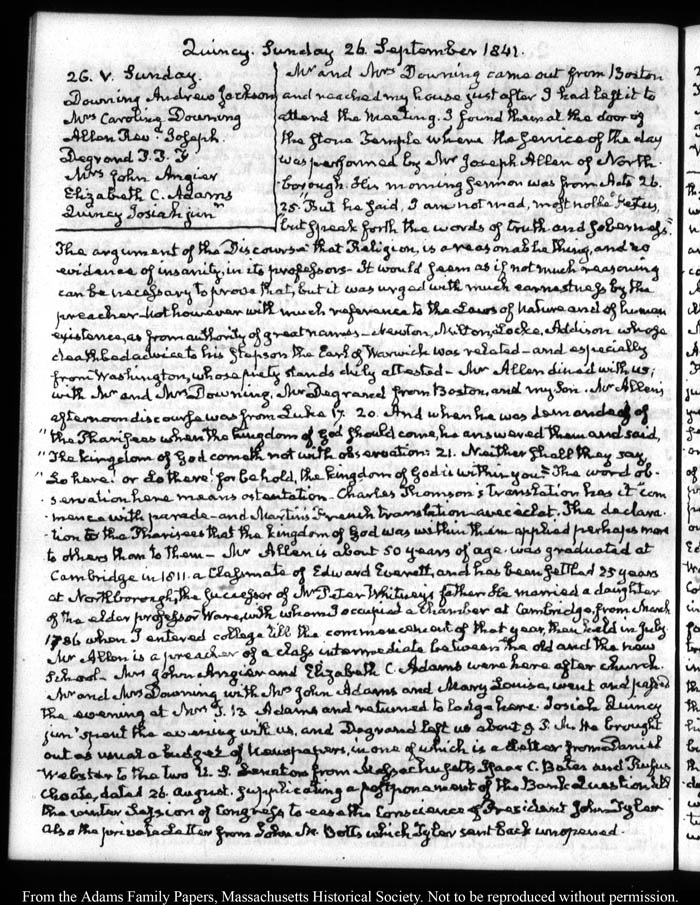 Quincy. Sunday 26. September 1841.
26. V. Sunday.
Downing Andrew Jackson
Mrs Caroline Downing
Allen Revd Joseph.
Degrand P. P. F
Mrs John Angier
Elizabeth C. Adams
Quincy Josiah junr
Mr and Mrs Downing came out from Boston
and reached my house just after I had left it to
attend the Meeting. I found them at the door of
the Stone Temple where the service of the day
was performed by Mr Joseph Allen of North-
borough. His morning Sermon was from Acts 26.
25 "But he said, I am not mad, most noble Festus,
"but speak forth the words of truth and soberness."
The argument of the Discourse that Religion, is a reasonable thing, and no
evidence of insanity, in its professors - It would seem as if not much reasoning
can be necessary to prove that, but it was urged with much earnestness by the
preacher - not however with much reference to the Laws of Nature and of human
existence, as from authority of great names - Newton, Milton, Locke, Addison whose
deathbed advice to his Stepson the Earl of Warwick was related - and especially
from Washington, whose piety stands duly attested - Mr Allen dined with us;
with Mr and Mrs Downing, Mr Degrand from Boston, and my Son. Mr Allen's
afternoon discourse was from Luke 17. 20. And when he was demanded of
"the Pharisees when the kingdom of God should come, he answered them and said,
"The kingdom of God cometh not with observation: 21. Neither shall they say
"Lo here! or Lo there! for behold, the kingdom of God is within you." The word ob-
servation here means ostentation - Charles Thomson's translation has it "com
mence with parade - and Martin's French translation - avec eclat. The declara-
tion to the Pharisees that the kingdom of God was within them applied perhaps more
to others than to them - Mr Allen is about 50 years of age. was graduated at
Cambridge in 1811. a Classmate of Edward Everett, and has been settled 25 years
at Northborough, the successor of Mr Peter Whitney's father. He married a daughter
of the elder professor Ware, with whom I occupied a Chamber at Cambridge, from March
1786 when I entered college till the commencement of that year, then held in July
Mr Allen is a preacher of a class intermediate between the old and the new
School - Mrs John Angier and Elizabeth C. Adams were here after church.
Mr and Mrs Downing with Mrs John Adams and Mary Louisa, went and passed
the evening at Mrs T. B. Adams and returned to lodge here. Josiah Quincy
junr spent the evening with us, and Degrand left us about 9 P.M. He brought
out as usual a budget of Newspapers, in one of which is a Letter from Daniel
Webster to the two U. S. Senators from Massachusetts Isaac C. Bates and Rufus
Choate, dated 26. August. supplicating a postponement of the Bank Question till
the winter Session of Congress to ease the Conscience of President John Tyler
Also the private Letter from John M. Botts which Tyler sent back unopened.
From the Adams Family Papers, Massachusetts Historical Society. Not to be reproduced without permission.